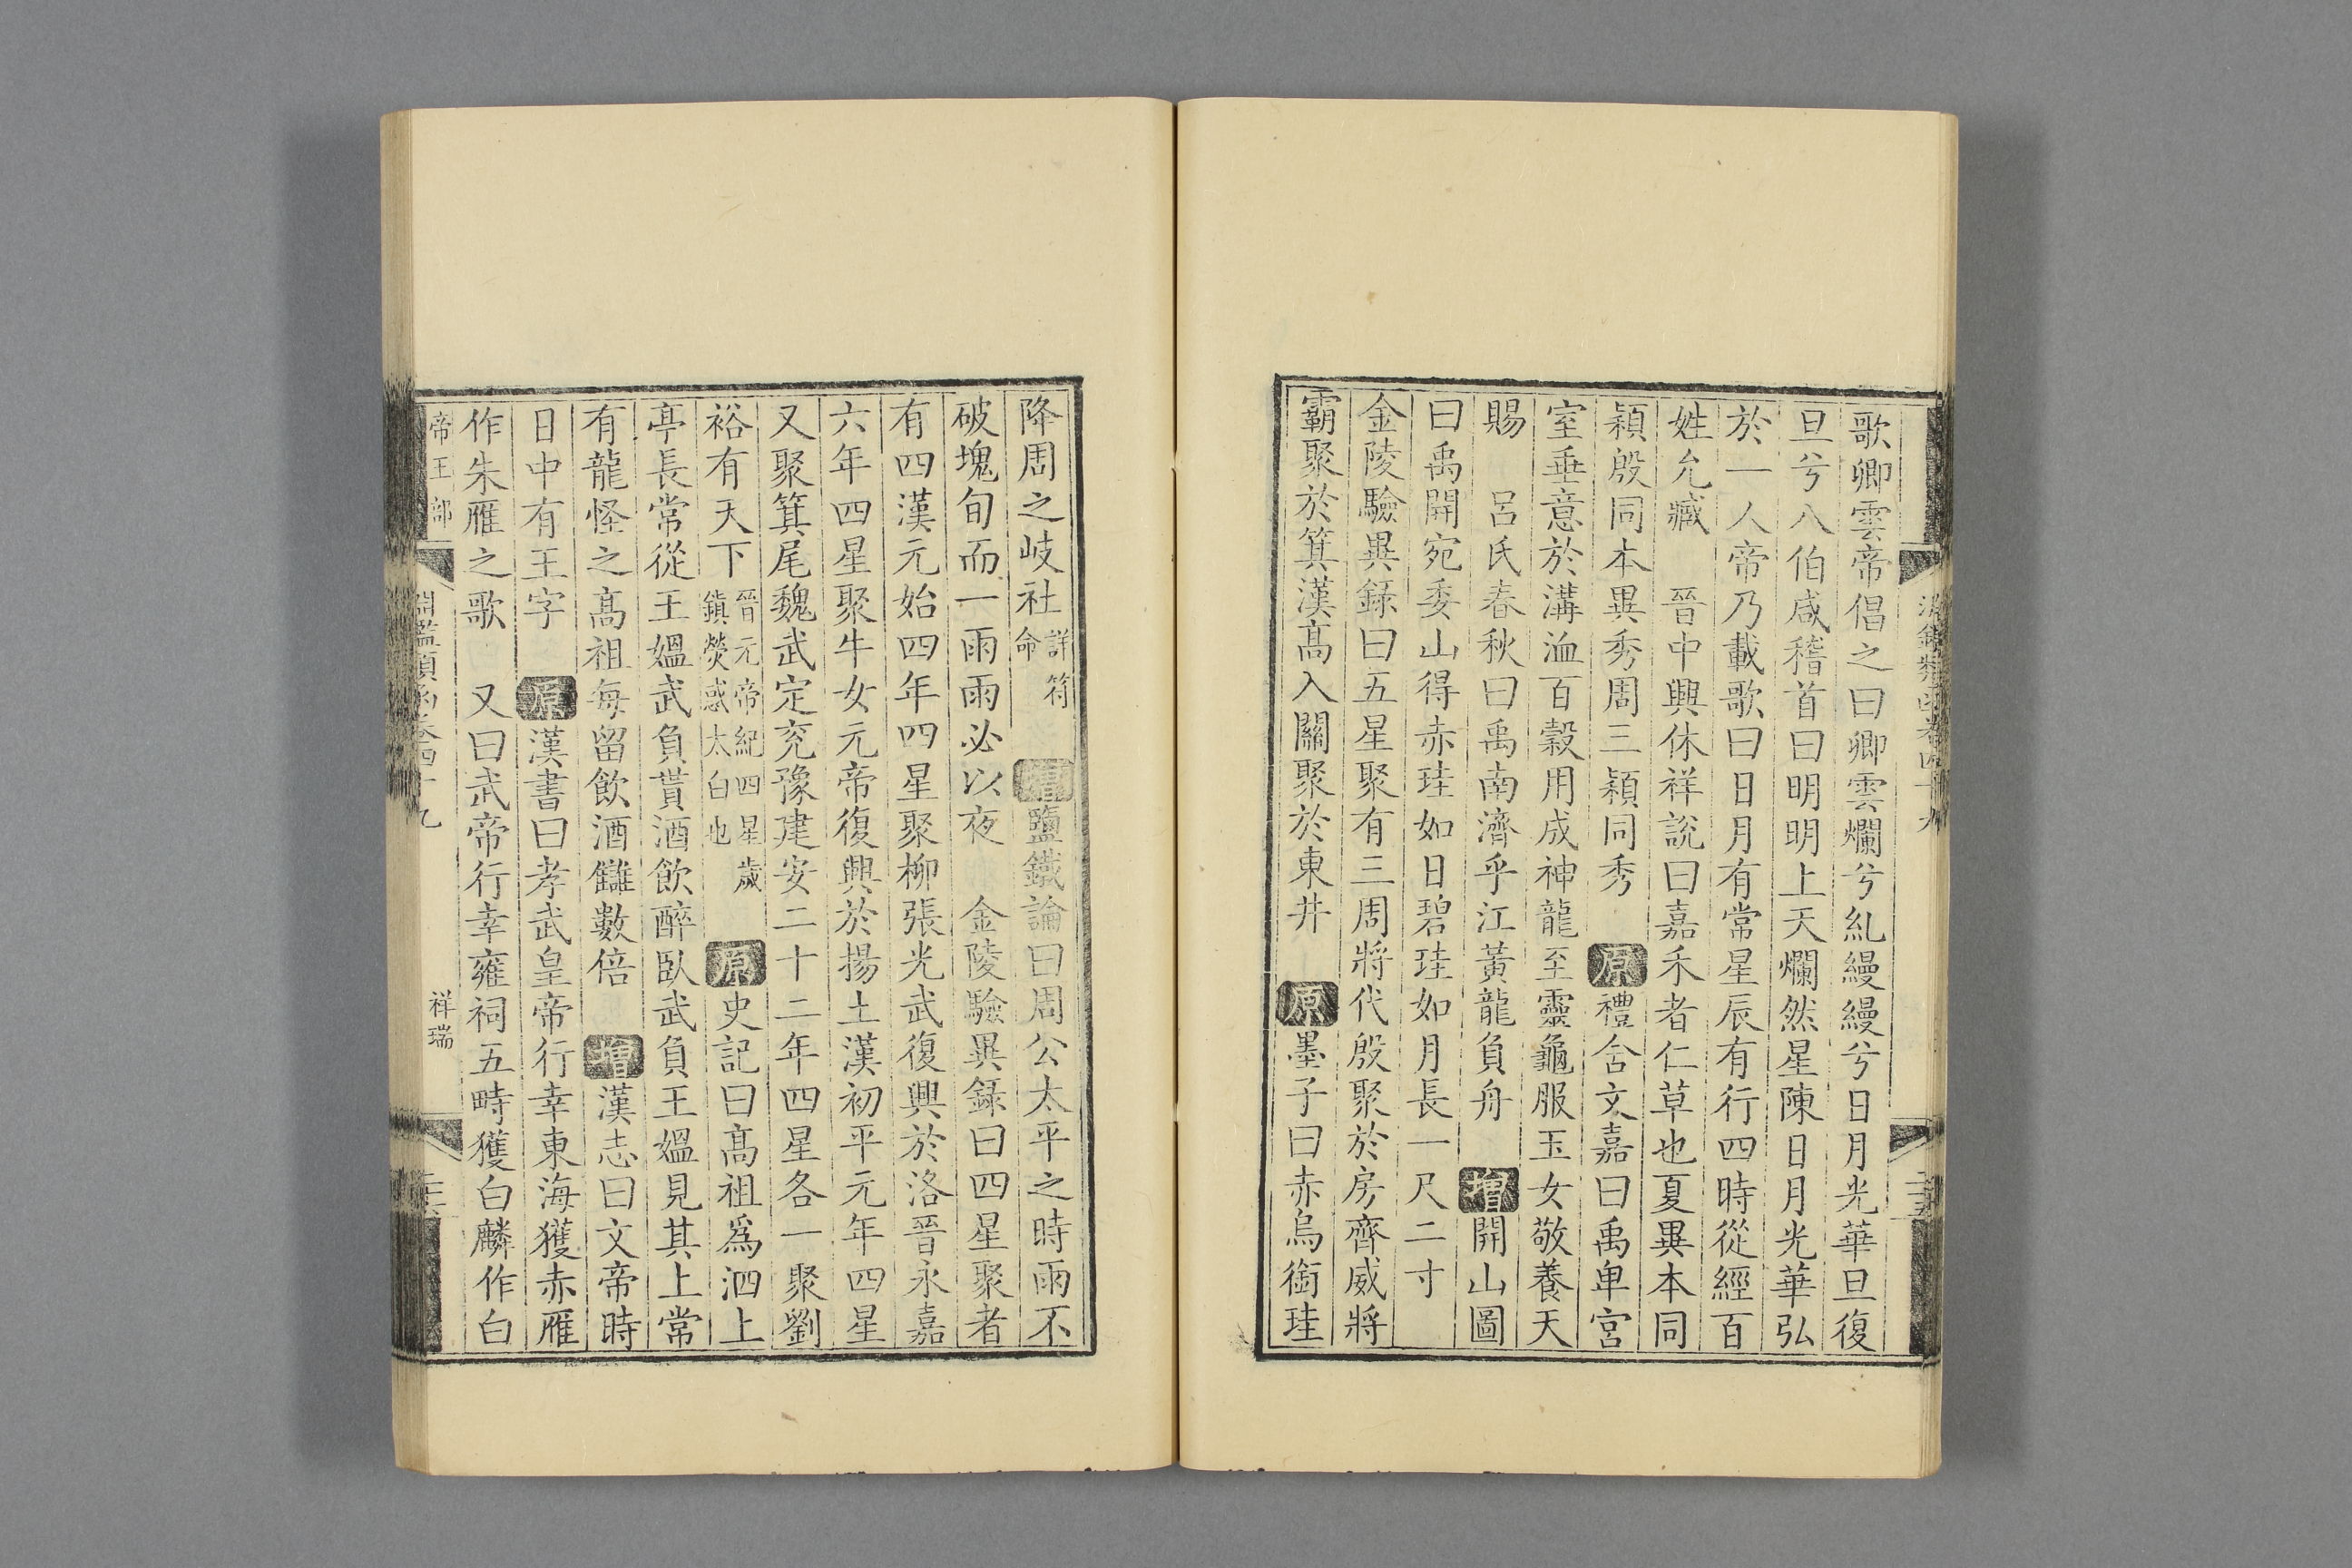 歌卿雲帝倡之曰卿雲爛兮糺縵縵兮日月光華旦復
旦兮八伯咸稽首曰明明上天爛然星陳日月光華弘
於一人帝乃載歌曰日月有常星辰有行四時從經百
姓允臧　晉中興休祥說曰嘉禾者仁草也夏異本同
穎殷同本異秀周三穎同秀　原禮含文嘉曰禹卑宮
室垂意於溝洫百穀用成神龍至靈龜服玉女敬養天
賜　呂氏春秋曰禹南濟乎江黃龍負舟　增開山圖
曰禹開宛委山得赤珪如日碧珪如月長一尺二寸
金陵驗異錄曰五星聚有三周將代殷聚於房齊威將
霸聚於箕漢高入關聚於東井　原墨子曰赤烏銜珪
降周之岐社詳符命　增鹽鐵論曰周公太平之時雨不
破塊旬而一雨雨必以夜　金陵驗異錄曰四星聚者
有四漢元始四年四星聚柳張光武復興於洛晉永嘉
六年四星聚牛女元帝復興於揚土漢初平元年四星
又聚箕尾魏武定兗豫建安二十二年四星各一聚劉
裕有天下晉元帝紀四星歲鎮熒惑太白也　原史記曰高祖為泗上
亭長常從王媼武負貰酒飲醉臥武負王媼見其上常
有龍怪之高祖每留飲酒讎數倍　增漢志曰文帝時
日中有王字　原漢書曰孝武皇帝行幸東海獲赤雁
作朱雁之歌　又曰武帝行幸雍祠五畤獲白麟作白
帝王部　淵鑑類函卷四十九　祥瑞